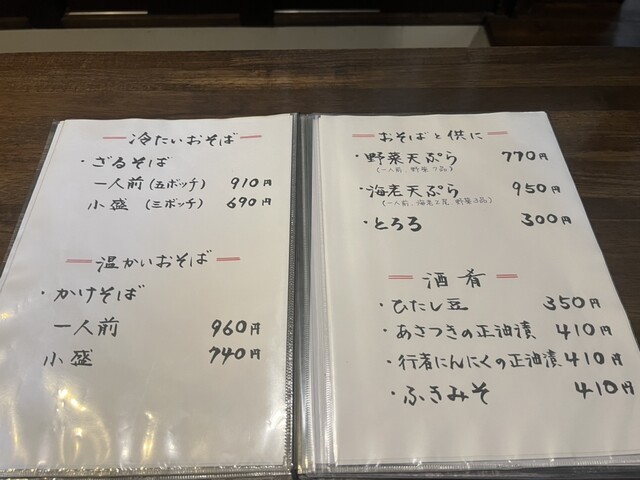 冷たいおそば
・ざるそば
一人前(五ボッチ) 910円
小盛 (三ボッチ) 690円
温かいおそば
・かけそば
一人前 960円
小盛 740円
おそばと供に
・野菜天ぷら 770円
(一人前、野菜7品)
・海老天ぷら 950円
(一人前、海老2尾、野菜3品)
・とろろ 300円
酒肴
・ひたし豆 350円
・あさつきの正油漬 410円
・行者にんにくの正油漬 410円
・ふきみそ 410円